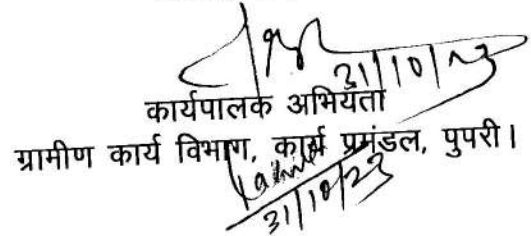 31/10/23
कार्यपालक अभियंता
ग्रामीण कार्य विभाग, कार्य प्रमंडल, पुपरी।
31/10/23